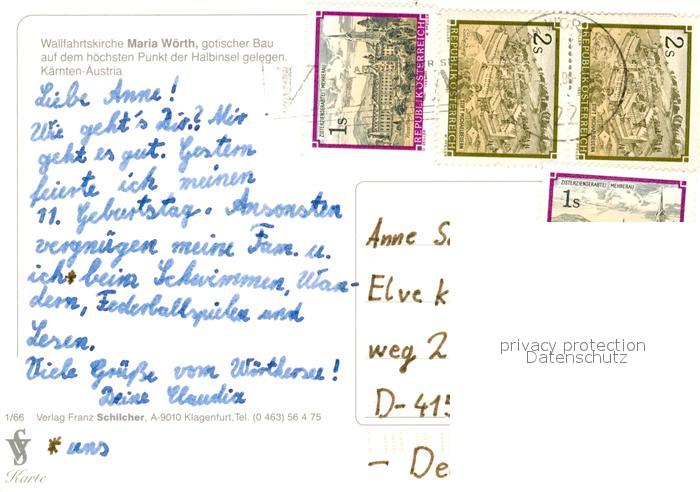 Wallfahrtskirche Maria Wörth, gotischer Bau
auf dem höchsten Punkt der Halbinsel gelegen.
Kärnten-Austria
Liebe Anne!
Wie geht's Dir? Mir
geht es gut. Gestern
feierte ich meinen
11. Geburtstag. Ansonsten
vergnügen meine Fam. u.
ich * beim Schwimmen, Wan-
dern, Federballspielen und
Lesen.
Viele Grüße vom Wörthersee!
Deine Claudia
1/66 Verlag Franz Schilcher, A-9010 Klagenfurt, Tel. (0 463) 56 4 75
* uns
Karte
ZISTERZIENSERABTEI MEHRERAU
1s
REPUBLIK ÖSTERREICH
REPUBLIK ÖSTERREICH
2s
REPUBLIK ÖSTERREICH
2s
ZISTERZIENSERABTEI MEHRERAU
1s
Anne S
Elve k
weg 2
D-415
- De
privacy protection
Datenschutz